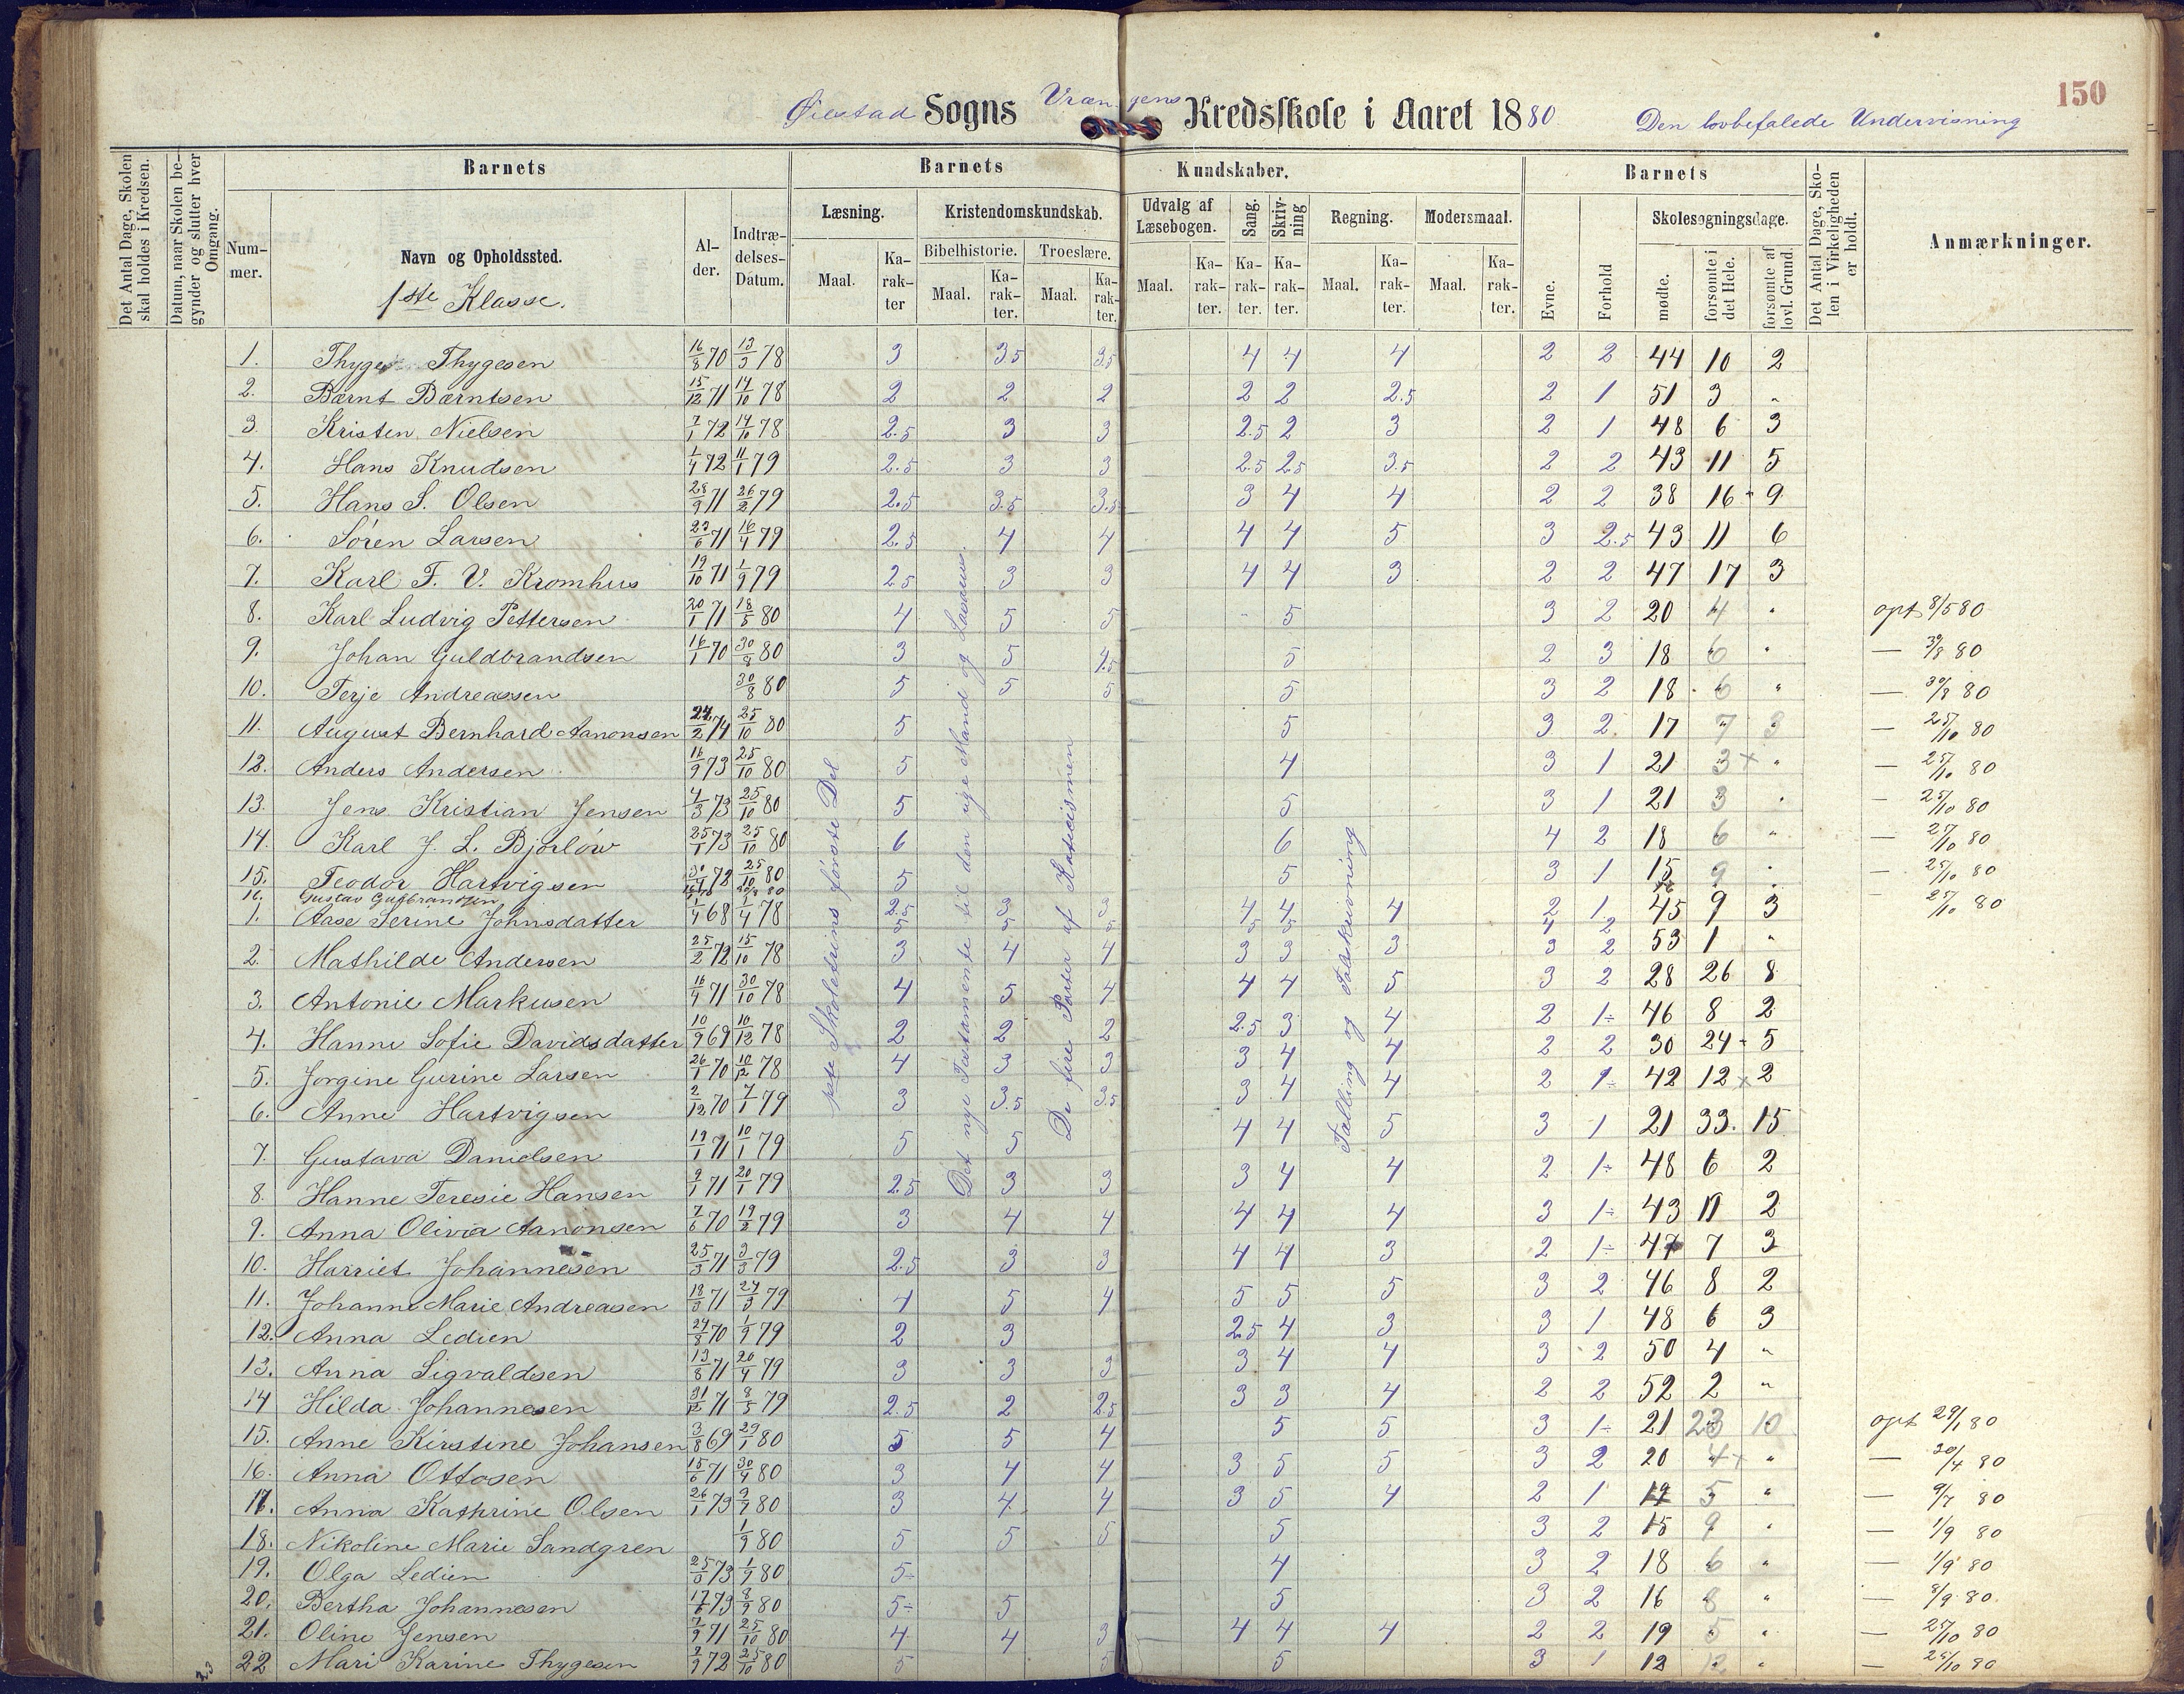 150
Øiestad Sogns Vrængens Kredsskole i Aaret 1880. Den lovbefalede Undervisning
Det Antal Dage, Skolen skal holdes i Kredsen.
Datum, naar Skolen begynder og slutter hver Omgang.
Barnets
Barnets Kundskaber.
Barnets
Det Antal Dage, Skolen i Virkeligheden er holdt.
Anmærkninger.
Nummer.
Navn og Opholdssted.
1ste Klasse.
Alder.
Indtrædelses-Datum.
Læsning.
Kristendomskundskab.
Bibelhistorie.
Troeslære.
Udvalg af Læsebogen.
Sang.
Skrivning
Regning.
Modersmaal.
Evne.
Forhold
Skolesøgningsdage.
mødte.
forsømte i det Hele.
forsømte af lovl. Grund.
Maal. Karakter Maal. Karakter. Maal. Karakter. Maal. Karakter. Karakter. Karakter. Maal. Karakter. Maal. Karakter.
1. Thyge Thygesen 16/8 70 13/3 78 3 3.5 3.5 4 4 4 2 2 44 10 2
2. Bærnt Bærntsen 15/12 71 14/10 78 2 2 2 2 2 2.5 2 1 51 3 "
3. Kristen Nielsen 7/1 72 14/10 78 2.5 3 3 2.5 2 3 2 1 48 6 3
4. Hans Knudsen 1/4 72 11/1 79 2.5 3 3 2.5 2.5 3.5 2 2 43 11 5
5. Hans S. Olsen 28/9 71 26/2 79 2.5 3.5 3.5 3 4 4 2 2 38 16 - 9
6. Søren Larsen 23/6 71 16/4 79 2.5 4 4 4 4 5 3 2.5 43 11 6
7. Karl F. V. Kromhus 19/10 71 1/9 79 2.5 3 3 4 4 3 2 2 47 17 3
8. Karl Ludvig Pettersen 20/1 71 18/5 80 4 5 5 - 5 3 2 20 4 " opt 8/5 80
9. Johan Guldbrandsen 16/1 70 30/8 80 3 5 4.5 5 2 3 18 6 " — 30/8 80
10. Terje Andreassen 30/8 80 5 5 5 5 3 2 18 6 " — 30/8 80
11. August Bernhard Aanonsen 24/2 74 25/10 80 5 5 3 2 17 7 3 — 25/10 80
12. Anders Andersen 16/9 73 25/10 80 5 4 3 1 21 3 + " — 25/10 80
13. Jens Kristian Jensen 4/3 73 25/10 80 5 5 3 1 21 3 " — 25/10 80
14. Karl J. L. Bjorløw 25/1 73 25/10 80 6 6 4 2 18 6 " — 25/10 80
15. Teodor Hartvigsen 30/4 72 25/10 80 5 5 3 1 15 9 " — 25/10 80
16. Gustav Gutbrandsen — 25/10 80
1. Aase Serine Johnsdatter 1/4 68 1/4 78 2.5 3 3 4 4 4 2 1 45 9 3
2. Mathilde Andersen 25/2 72 15/10 78 3 4 4 3 3 3 3 2 53 1 "
3. Antonie Markusen 16/4 71 30/10 78 4 5 4 4 4 5 3 2 28 26 8
4. Hanne Sofie Davidsdatter 10/9 69 10/12 78 2 2 2 2.5 3 4 2 1÷ 46 8 2
5. Jørgine Gurine Larsen 26/1 70 10/12 78 4 3 3 3 4 4 2 2 30 24 - 5
6. Anne Hartvigsen 2/12 70 7/1 79 3 3.5 3.5 3 4 4 2 1÷ 42 12 x 2
7. Gustava Danielsen 19/1 71 10/1 79 5 5 4 4 5 3 1 21 33. 15
8. Hanne Teresie Hansen 9/1 71 20/1 79 2.5 3 3 3 4 4 2 1÷ 48 6 2
9. Anna Olivia Aanonsen 7/6 70 19/2 79 3 4 4 4 4 4 3 1÷ 43 11 2
10. Harriet Johannesen 25/3 71 3/3 79 2.5 3 3 4 4 3 2 1÷ 47 7 3
11. Johanne Marie Andreasen 18/3 71 24/3 79 4 5 4 5 5 5 3 2 46 8 2
12. Anna Ledien 24/8 70 1/9 79 2 3 2.5 4 3 3 1 48 6 3
13. Anna Sigvaldsen 13/8 71 20/4 79 3 3 3 3 4 4 3 2 50 4 "
14 Hilda Johannesen 31/12 71 8/5 79 2.5 2 2.5 3 3 4 2 2 52 2 "
15. Anne Kirstine Johansen 3/8 69 29/1 80 5 5 4 5 5 3 1÷ 21 23 10 opt 29/1 80
16. Anna Ottosen 15/6 71 30/4 80 3 4 4 3 5 5 3 2 20 4+ " — 30/4 80
17. Anna Kathrine Olsen 26/1 73 9/7 80 3 4 4 3 5 4 2 1 19 5 " — 9/7 80
18. Nikoline Marie Sandgren 1/9 80 5 5 5 5 3 2 15 9 " — 1/9 80
19. Olga Ledien 25/3 73 1/9 80 5÷ 4 3 2 18 6 " — 1/9 80
20. Bertha Johannesen 17/6 73 8/9 80 5÷ 5 5 3 2 16 8 " — 8/9 80.
21. Oline Jensen 7/9 71 25/10 80 4 4 3 4 4 4 2 2 19 5 " — 25/10 80
22 Mari Karine Thygesen 2/9 72 25/10 80 5 5 5 3 1 12 12 " — 25/10 80
23
1ste Skoletrins første Del
Det nye Testamente til den rige Mand og Lasarus.
De fire Parter af Katecismen
Tælling og Talskrivning